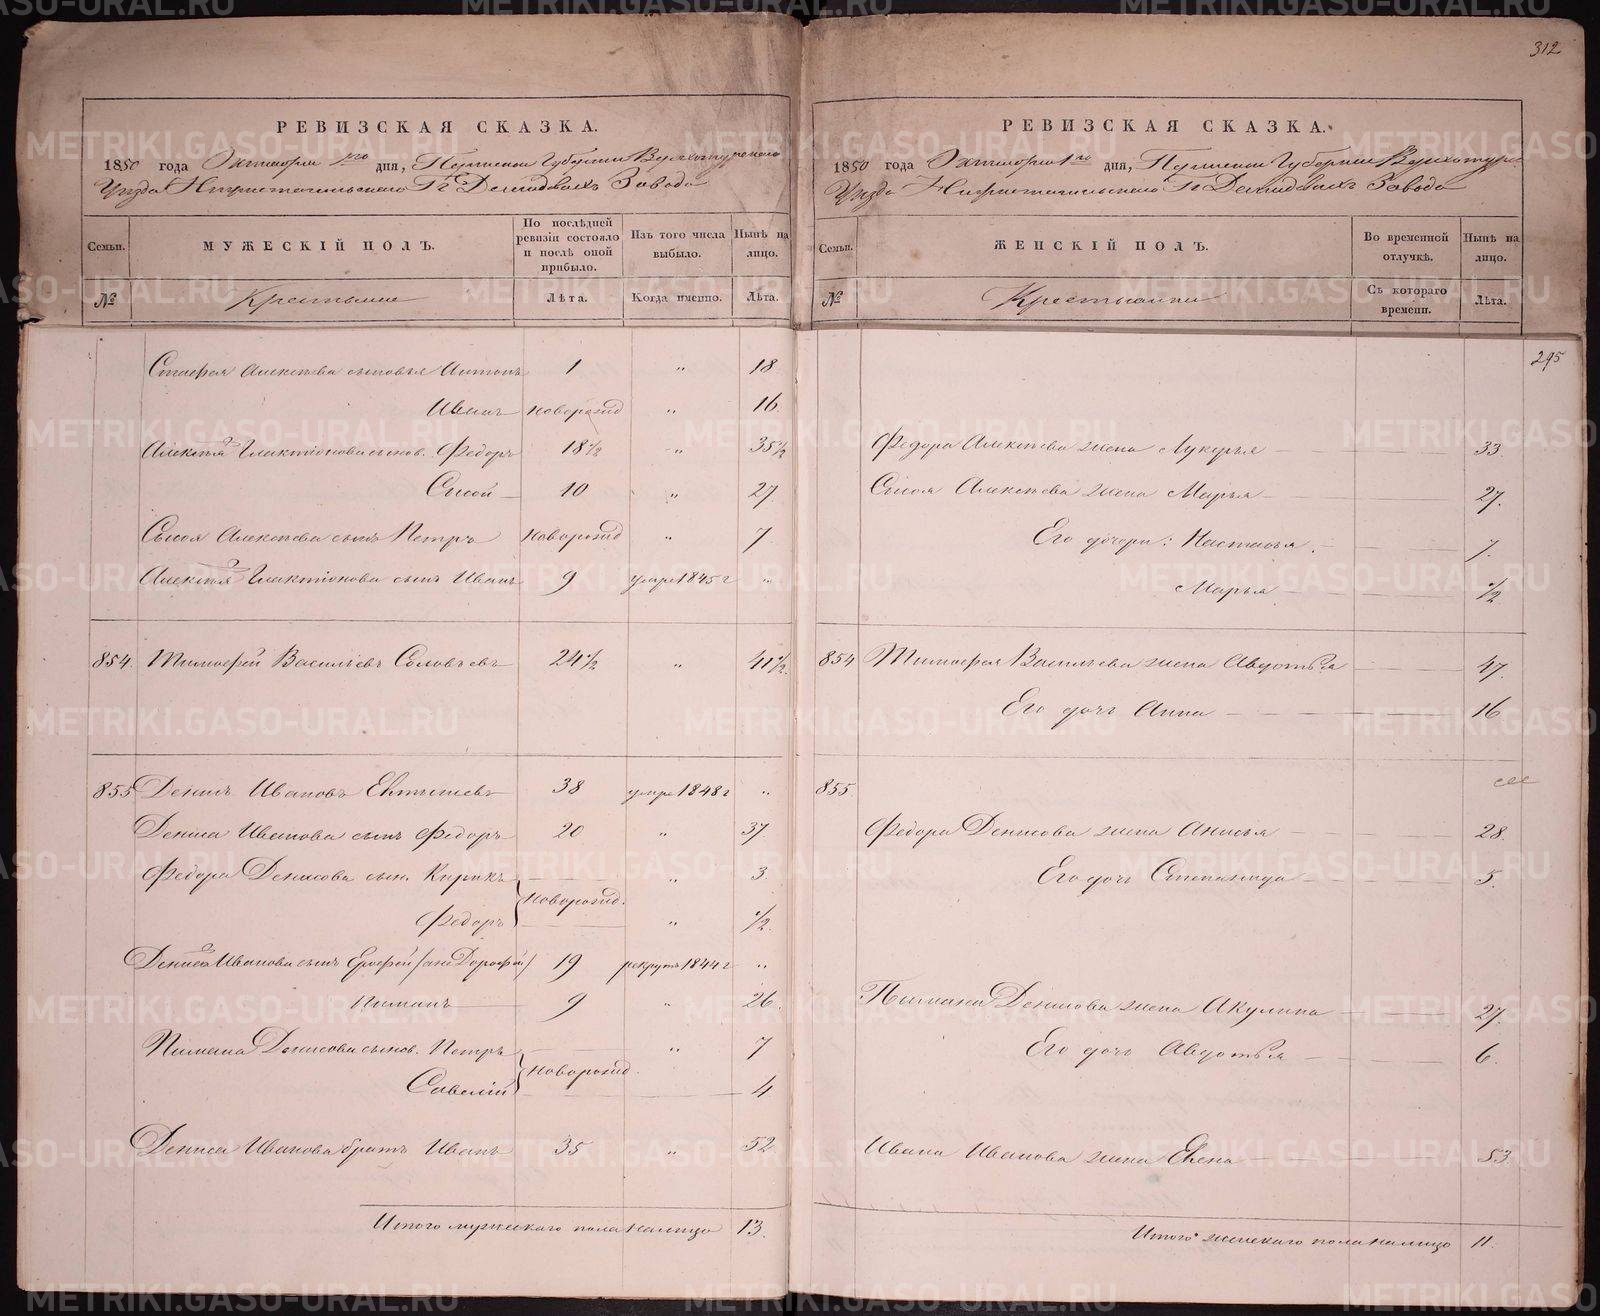 312
РЕВИЗСКАЯ СКАЗКА.
1850 года Октября 1го дня, Пермской Губернии Верхотурского
Уезда Нижнетагильского Гг Демидовыхъ Завода
Семьи. МУЖЕСКІЙ ПОЛЪ. По послѣдней ревизіи состояло и послѣ оной прибыло. Изъ того числа выбыло. Нынѣ на лицо.
№ Крестьяне Лѣта. Когда именно. Лѣта.
Алексѣева сыновья Антонъ 1 " 18
Иванъ новорожд " 16
Алексѣя Галактіонова сынов. Федоръ 18½ " 35½
Сысой 10 " 27
Сысоя Алексѣева сынъ Петръ новорожд " 7
Алексѣя Галактіонова сынъ Иванъ 9 умре 1845 г "
854. Тимофей Васильевъ Соловьевъ 24½ " 41½
855 Денисъ Ивановъ 38 умре 1848 г "
Дениса Иванова сынъ Федоръ 20 " 37
Федора Денисова сын. Кирикъ новорожд. " 3
Федоръ " ½
Дениса Иванова сынъ Ерофей /онъ Дорофей/ 19 рекрутъ 1844 г "
Пименъ 9 " 26
Пимена Денисова сынов. Петръ новорожд. " 7
Савелій 4
Дениса Иванова братъ Иванъ 35 " 52
Итого мужескаго пола налицо 13.
РЕВИЗСКАЯ СКАЗКА.
1850 года Октября 1го дня, Пермской Губернии Верхотур.
Уезда Нижнетагильского Гг Демидовыхъ Завода
Семьи. ЖЕНСКІЙ ПОЛЪ. Во временной отлучкѣ. Нынѣ на лицо.
№ Крестьянки Съ котораго времени. Лѣта.
295
Федора Алексѣева жена Лукерья 33
Сысоя Алексѣева жена Марья 27.
Его дочери: Настасья. 7.
Марья ½
854 Тимофея Васильева жена Авдотья 47.
Его дочь Анна 16
855.
Федора Денисова жена Анисья 28.
Его дочь Степанида 5.
Пимена Денисова жена Акулина 27.
Его дочь Авдотья 6.
Ивана Иванова жена Елена 53.
Итого женскаго пола налицо 11.
METRIKI.GASO-URAL.RU